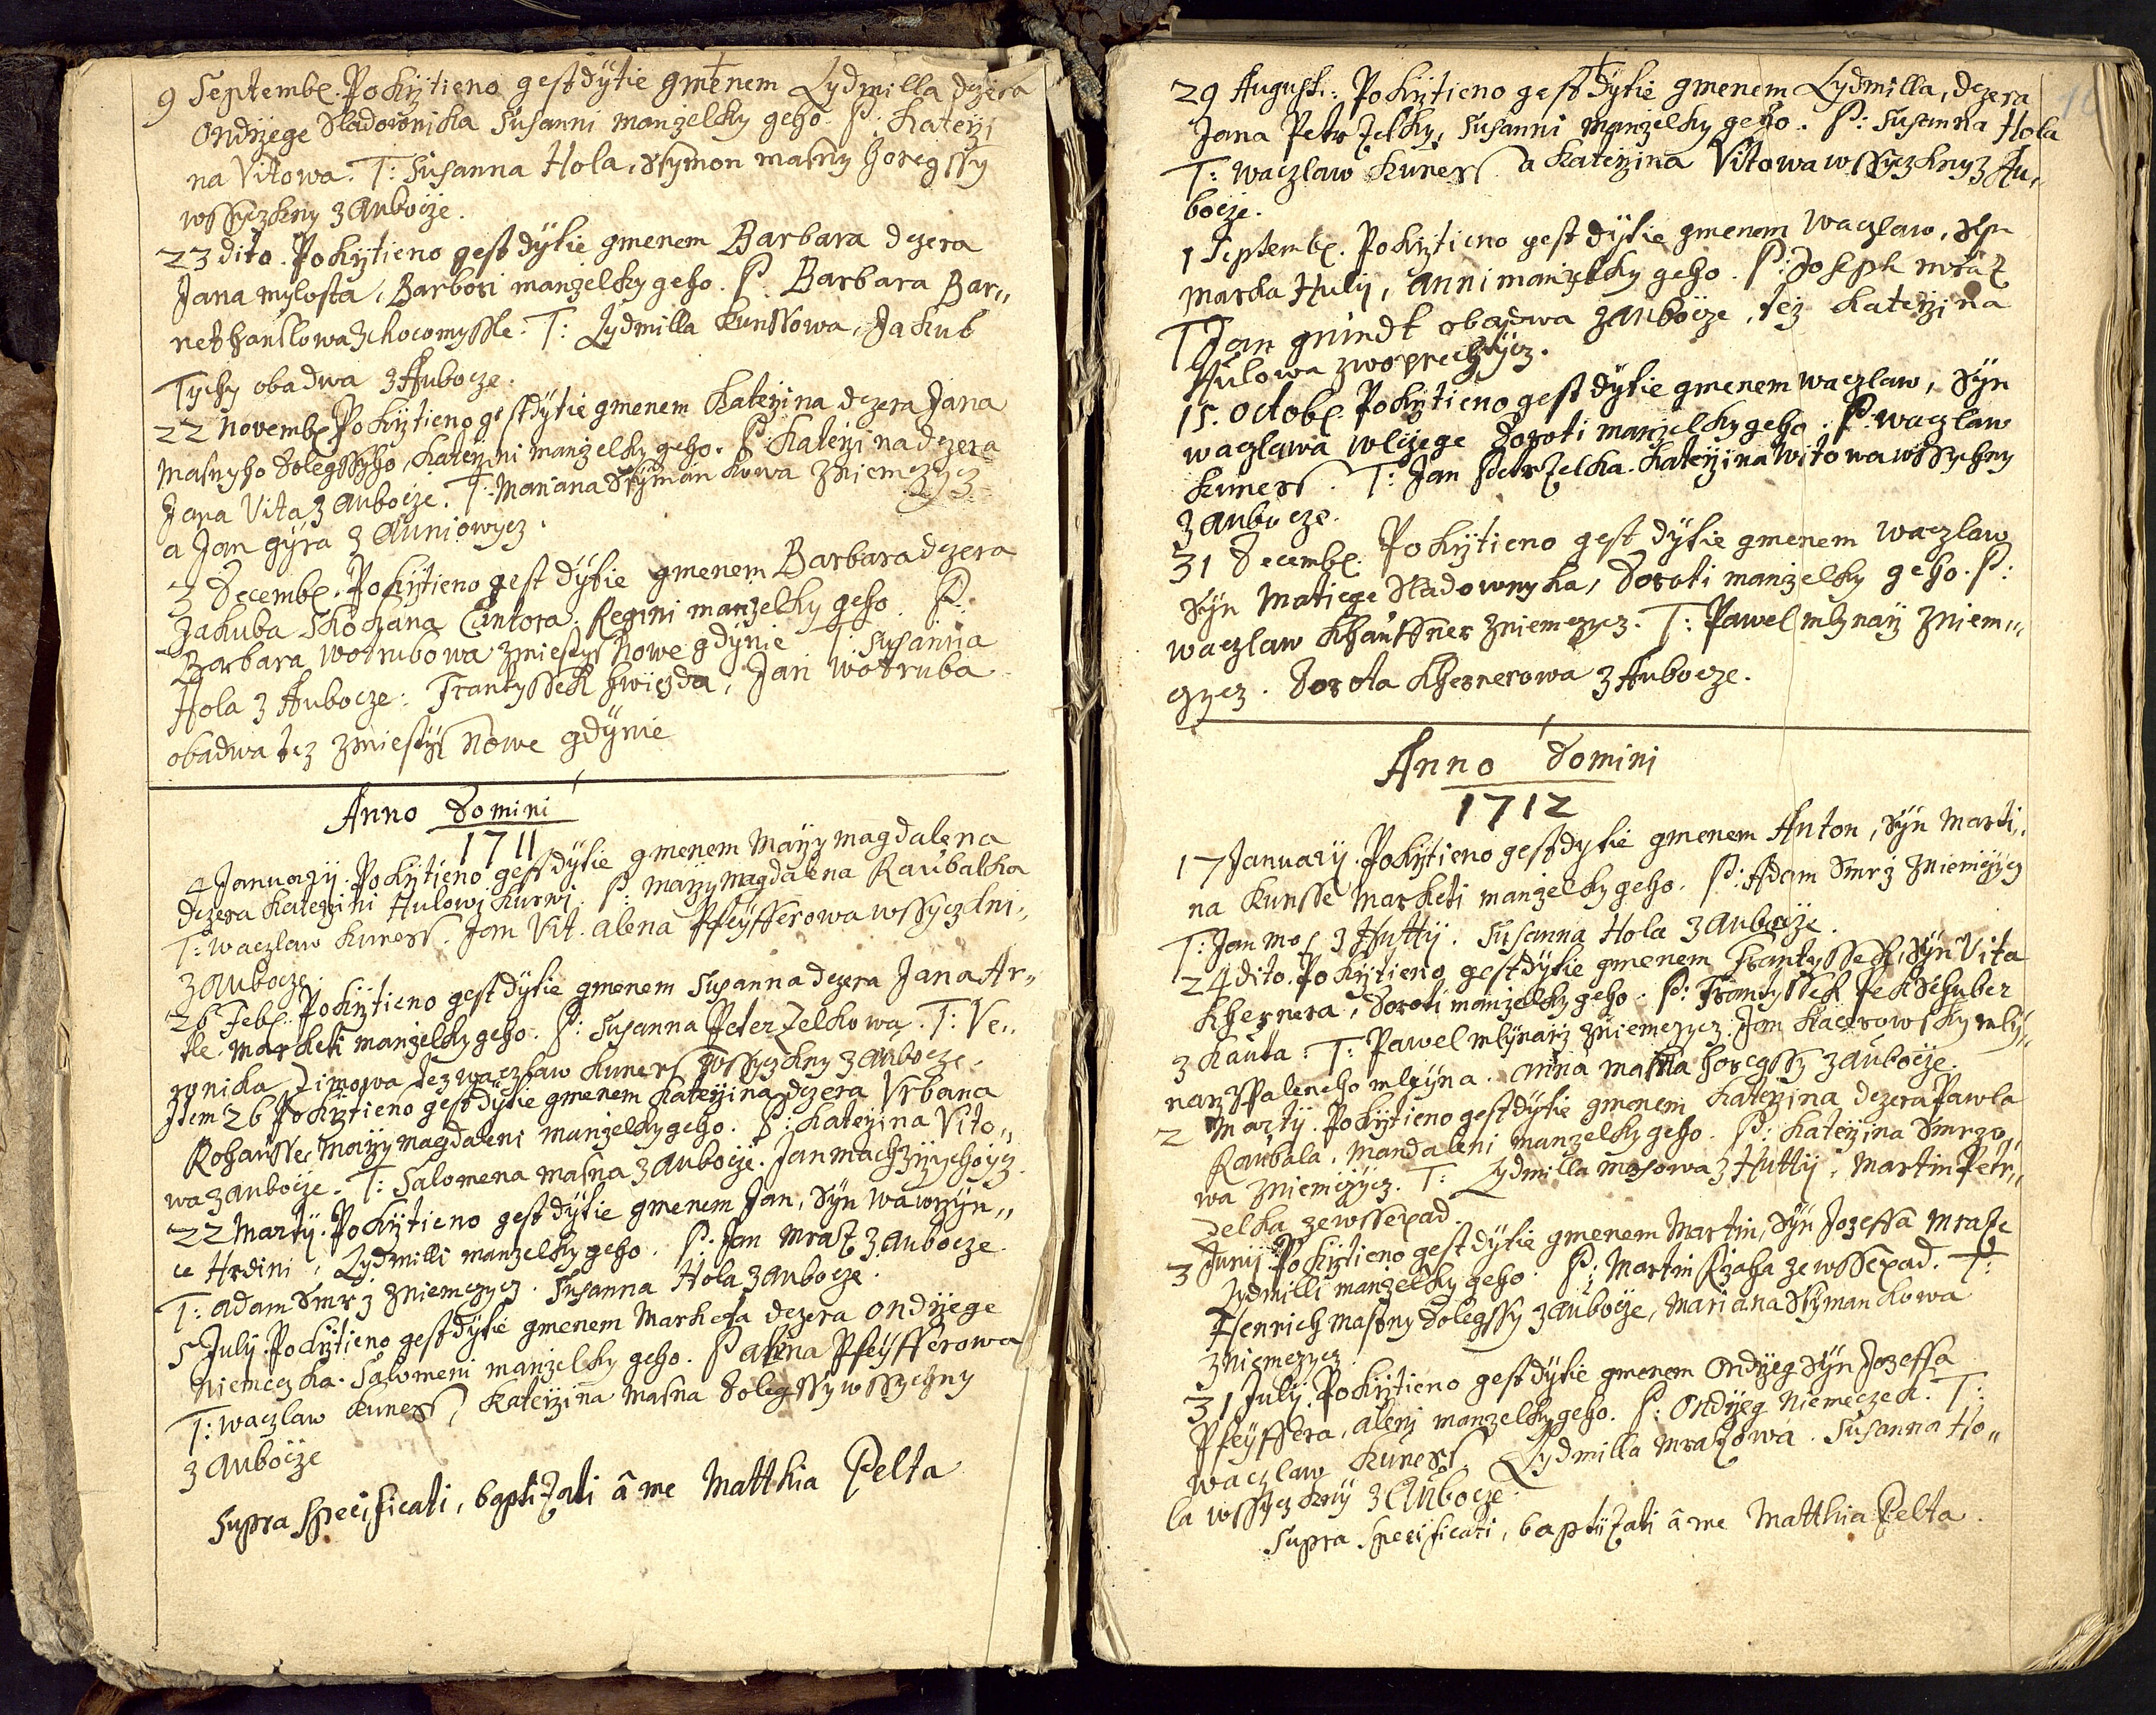 9 Septemb. Pokrztieno gest dytie gmenem Lydmilla dczera
Ondrzege Sladownika Susanni manzelky geho. P: Katerzi
na Vitowa. T: Susanna Hola, Ssymon masny horegssy
wssyczkny z Aubocze.
23 dito. Pokrztieno gest dytie gmenem Barbara dczera
Jana mylosta, Barbori manzelky geho. P. Barbara Bar,,
z Chocomyssle. T: Lydmilla Kunssowa, Jakub
Tychy obadwa z Aubocze.
22 Novemb. Pokrztieno gest dytie gmenem Katerzina dczera Jana
Masnyho dolegssyho, Katerzini manzelky geho. P: Katerzina dczera
Jana Vita z Aubocze. T: Mariana Ssymankowa z Niemczycz
a Jan gyra z Auniowycz.
3 Decemb. Pokrztieno gest dytie gmenem Barbara dczera
Jakuba Skochana Cantora. Regini manzelky geho. P:
Barbara wotrubowa z miestys Nowe gdynie T: Susanna
Hola z Aubocze: Frantyssek hwiezda, Jan wotruba
obadwa tez z miestys Nowe gdynie
Anno Domini
1711
4 January. Pokrztieno gest dytie gmenem Marzy magdalena
dczera Katerzini Hulowi Kurwi. P: marzy magdalena Raubalka
T: waczlaw Kuness. Jan Vit. alena Pfeyfferowa wssyczkni,,
z Aubocze.
26 Feb. Pokrztieno gest dytie gmenem Susanna dczera Jana Ar,,
tle. Marketi manzelky geho. P: Susanna Peterzelkowa. T: Ve,,
ronika Zimowa tez waczlaw Kuness wssyczkny z Aubocze.
Item 26 Pokrztieno gest dytie gmenem Katerzina dczera Vrbana
Rohausse Marzy magdaleni manzelky geho. P: Katerzina Vito,,
wa z Aubocze. T: Salomena masna z Aubocze. Jan mach
22 Marty. Pokrztieno gest dytie gmenem Jan, Syn wawrzyn,,
ce Hrdini, Lydmilli manzelky geho. P: Jan Mraz z Aubocze.
T: Adam Smrz z Niemczycz. Susanna Hola z Aubocze.
5 July. Pokrztieno gest dytie gmenem Marketa dczera Ondrzege
Niemeczka. Salomeni manzelky geho. P alena Pfeyfferowa
T: waczlaw Kuness, Katerzina Masna dolegssy wssychny
z Aubocze
Supra specificati, baptizati â me Matthia Pelta
29 Augusti: Pokrztieno gest dytie gmenem Lydmilla, dczera
Jana Petrzelky, Susanni manzelky geho. P: Susanna Hola
T: waczlaw Kuness a Katerzina Vitowa wssyczkny z Au,,
bocze.
1 Septemb. Pokrztieno gest dytie gmenem Waczlaw, Syn
Marka Huly, anni manzelky geho. P: Joseph Mraz
T Jan grundt obadwa z Aubocze, tez Katerzina
Hulowa
15. Octob. Pokrztieno gest dytie gmenem waczlaw, Syn
waczlawa wlczege Doroti manzelky geho. P: waczlaw
Kuness. T: Jan Petrzelka. Katerzina Witowa wssychny
z Aubocze.
31 Decemb. Pokrztieno gest dytie gmenem Waczlaw
Syn Matiege Sladownyka, Doroti manzelky geho. P:
waczlaw Khaussner z Niemczycz. T: Pawel mlynarz z Niem,,
czycz. Dorota Khernerowa z Aubocze.
Anno Domini
1712
17 January. Pokrztieno gest dytie gmenem Anton, Syn Marti,,
na Kunsse Marketi manzelky geho. P: Adam Smrz z Niemczycz
T: Jan Mos z Hutty. Susanna Hola z Aubocze.
24 dito. Pokrztieno gest dytie gmenem Frantyssek, Syn Vita
Khernera, Doroti manzelky geho. P: Frantyssek Schuber
z Kauta: T: Pawel mlynarz z Niemczycz. Jan Kacerowsky mly,,
narz Spaleneho mleyna. Anna masna horegssy z Aubocze.
2 Marty. Pokrztieno gest dytie gmenem Katerzina dczera Pawla
Raubala. Mandaleni manzelky geho. P: Katerzina Smrzo,,
wa z Niemczycz. T: Lydmilla Mosowa z Hutty, Martin Petr,,
zelka ze wssepad.
3 Juny. Pokrztieno gest dytie gmenem Martin, Syn Jozeffa Mraze
Lydmilli manzelky geho. P: Martin Rzaha ze wssepad. T:
Henrich Masny dolegssy z Aubocze, Mariana Ssymankowa
z Niemczycz.
31 July. Pokrztieno gest dytie gmenem Ondrzeg Syn Jozeffa
Pfeyffera, aleni manzelky geho. P: Ondrzeg Niemeczek. T:
Waczlaw Kuness. Lydmilla Mrazowa. Susanna Ho,,
la wssyczkny z Aubocze.
Supra specificati, baptizati â me Matthia Pelta.